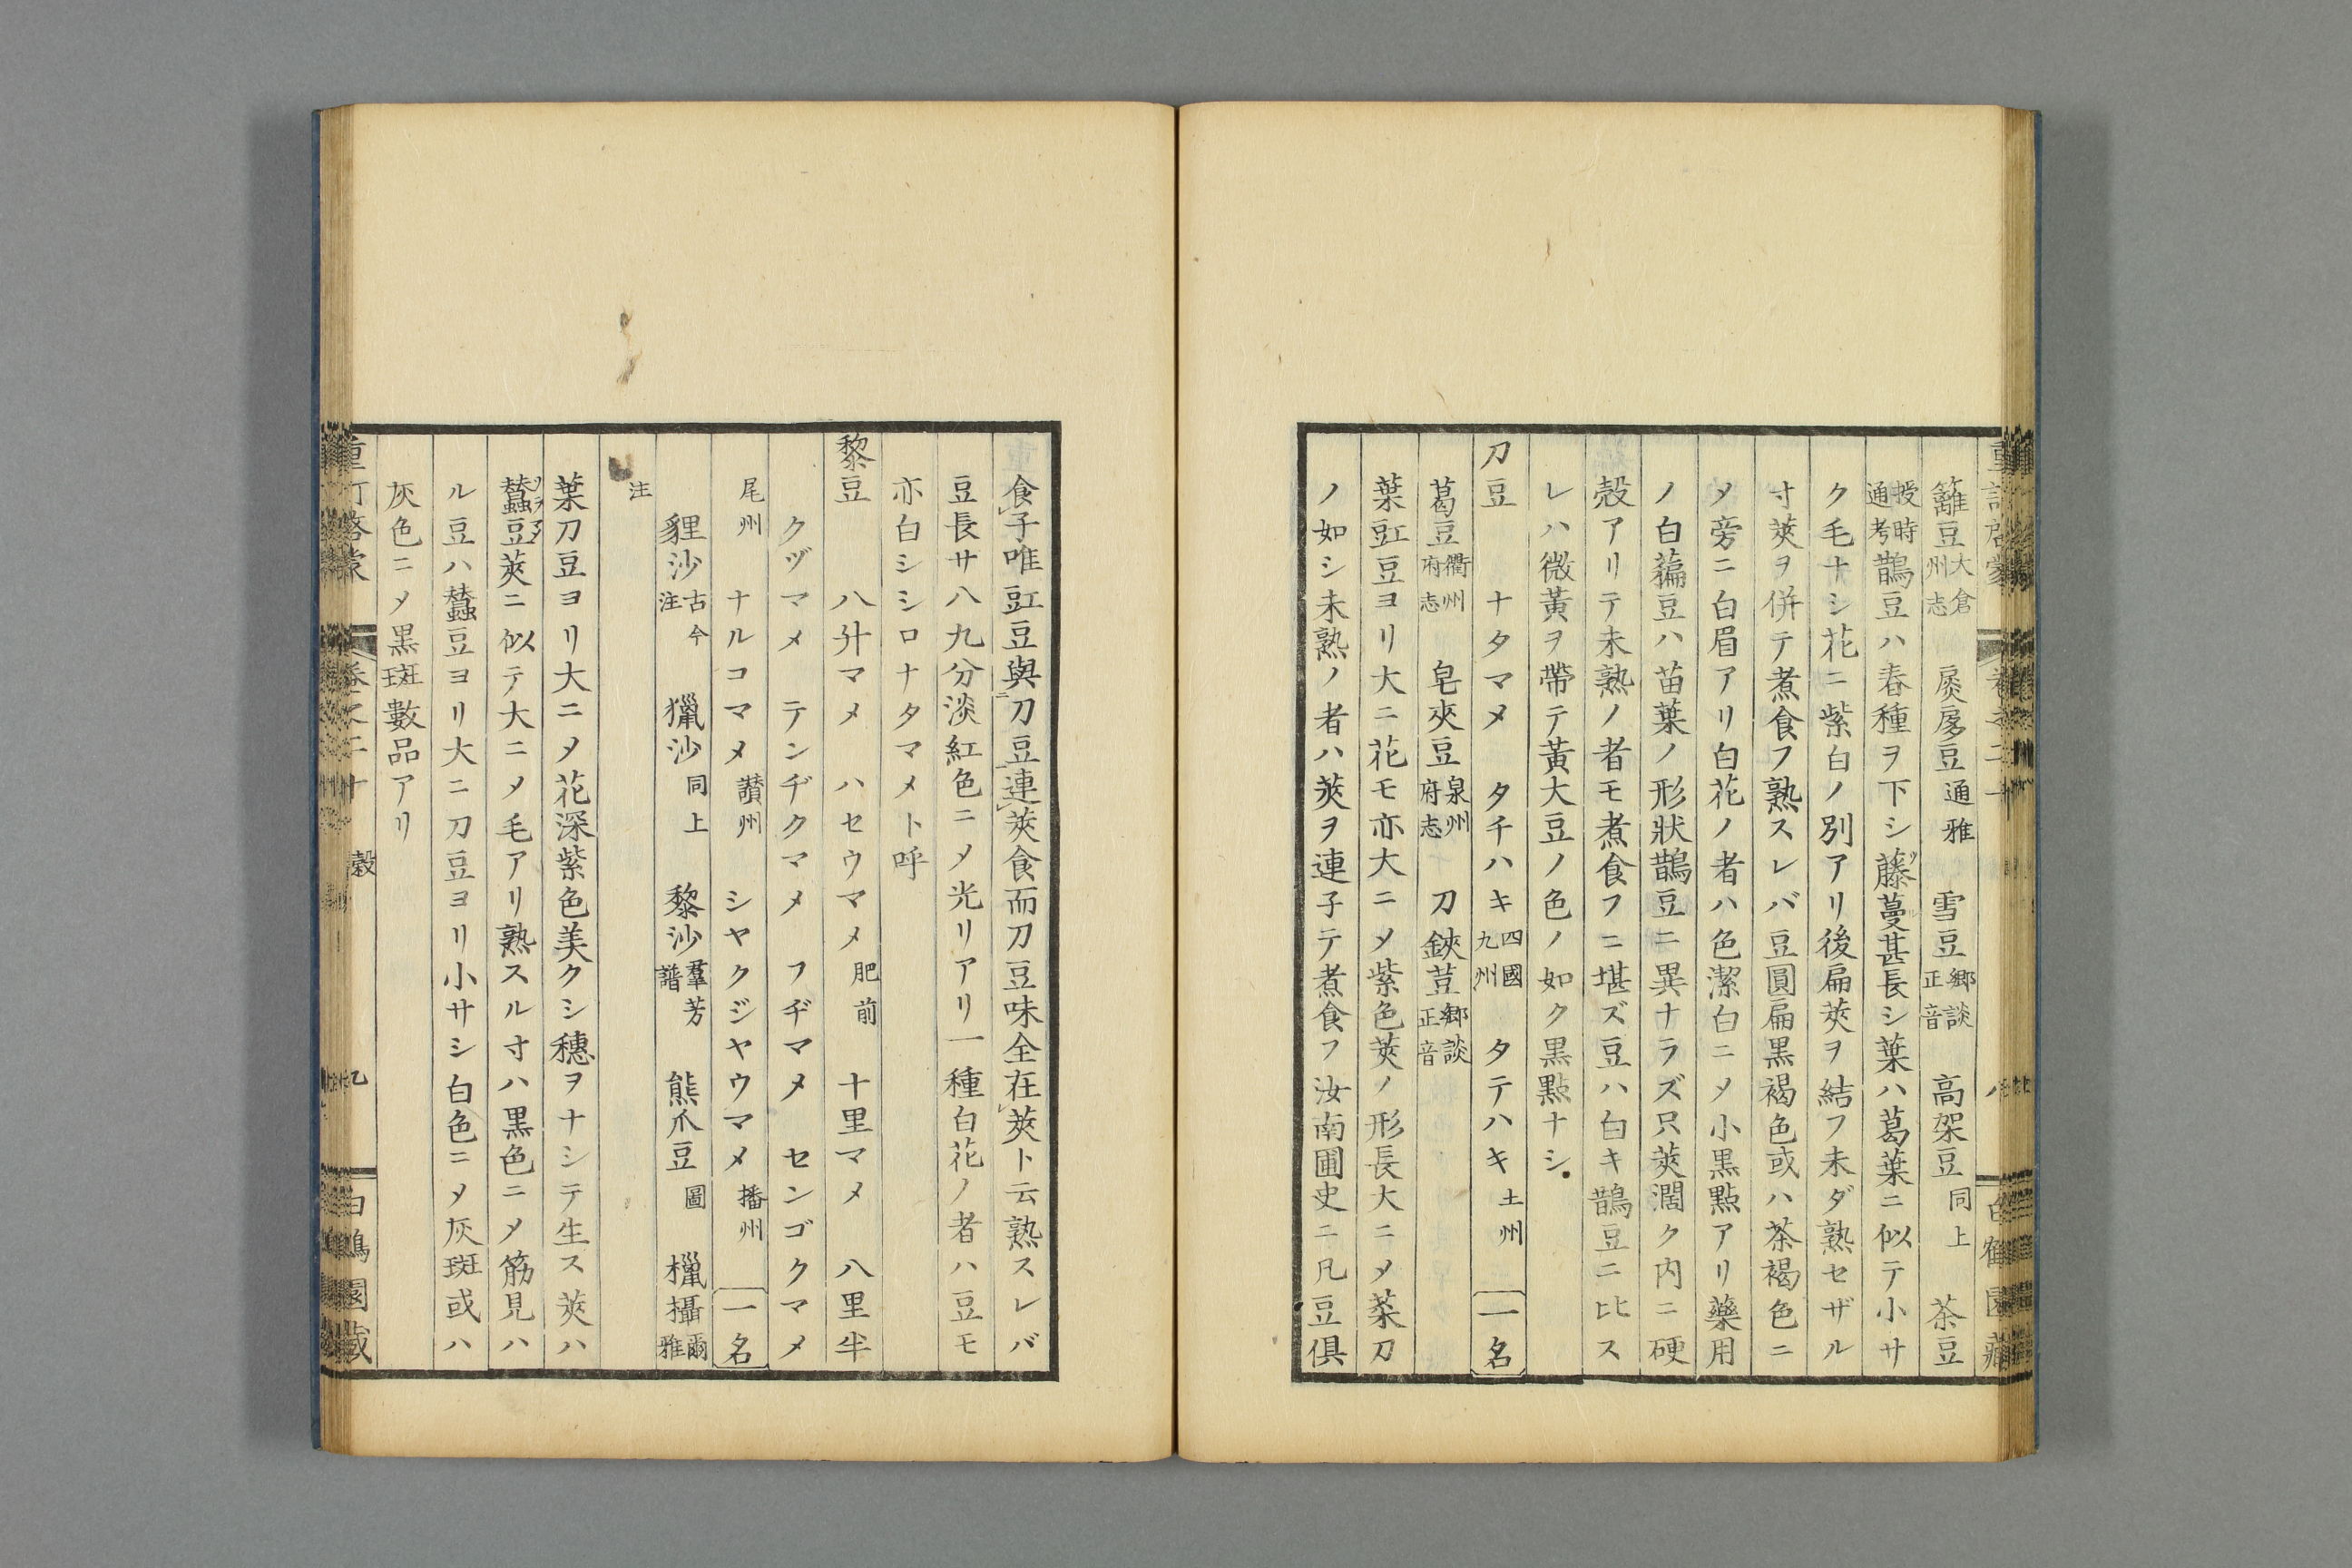 籬豆大倉州志 扊扅豆通雅 雪豆郷談正音 高架豆同上 茶豆
授時通考鵲豆ハ春種ヲ下シ藤蔓甚長シ葉ハ葛葉ニ似テ小サ
ク毛ナシ花ニ紫白ノ別アリ後扁莢ヲ結フ未ダ熟セザル
寸莢ヲ併テ煮食フ熟スレバ豆圓扁黒褐色或ハ茶褐色ニ
乄旁ニ白眉アリ白花ノ者ハ色潔白ニ乄小黒點アリ藥用
ノ白藊豆ハ苗葉ノ形狀鵲豆ニ異ナラズ只莢濶ク内ニ硬
殻アリテ未熟ノ者モ煮食フニ堪ズ豆ハ白キ鵲豆ニ比ス
レハ微黃ヲ帶テ黃大豆ノ色ノ如ク黒點ナシ
刀豆 ナタマメ タチハキ四國九州 タテハキ土州 一名
葛豆衢州府志 皂夾豆泉州府志 刀鋏荳郷談正音
葉豇豆ヨリ大ニ花モ亦大ニ乄紫色莢ノ形長大ニ乄菜刀
ノ如シ未熟ノ者ハ莢ヲ連子テ煮食フ汝南圃史ニ凡豆俱
食子唯豇豆與刀豆連莢食而刀豆味全在莢ト云熟スレバ
豆長サ八九分淡紅色ニ乄光リアリ一種白花ノ者ハ豆モ
亦白シシロナタマメト呼
黎豆 八升マメ ハセウマメ肥前 十里マメ 八里半
クヅマメ テンヂクマメ フヂマメ センゴクマメ
尾州 ナルコマメ讃州 シヤクジヤウマメ播州 一名
貍沙古今注 獵沙同上 黎沙羣芳譜 熊爪豆圖 欇攝爾雅
注
葉刀豆ヨリ大ニ乄花深紫色美クシ穗ヲナシテ生ス莢ハ
蠶豆莢ニ似テ大ニ乄毛アリ熟スル寸ハ黒色ニ乄筋見ハ
ル豆ハ蠶豆ヨリ大ニ刀豆ヨリ小サシ白色ニ乄灰斑或ハ
灰色ニ乄黒斑數品アリ
穀
九